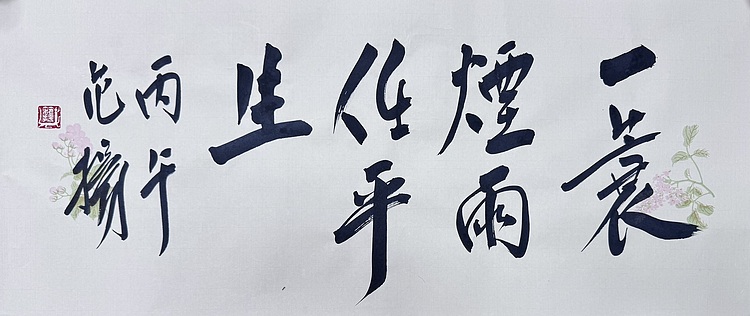 一蓑
煙雨
任平
生
丙午
范